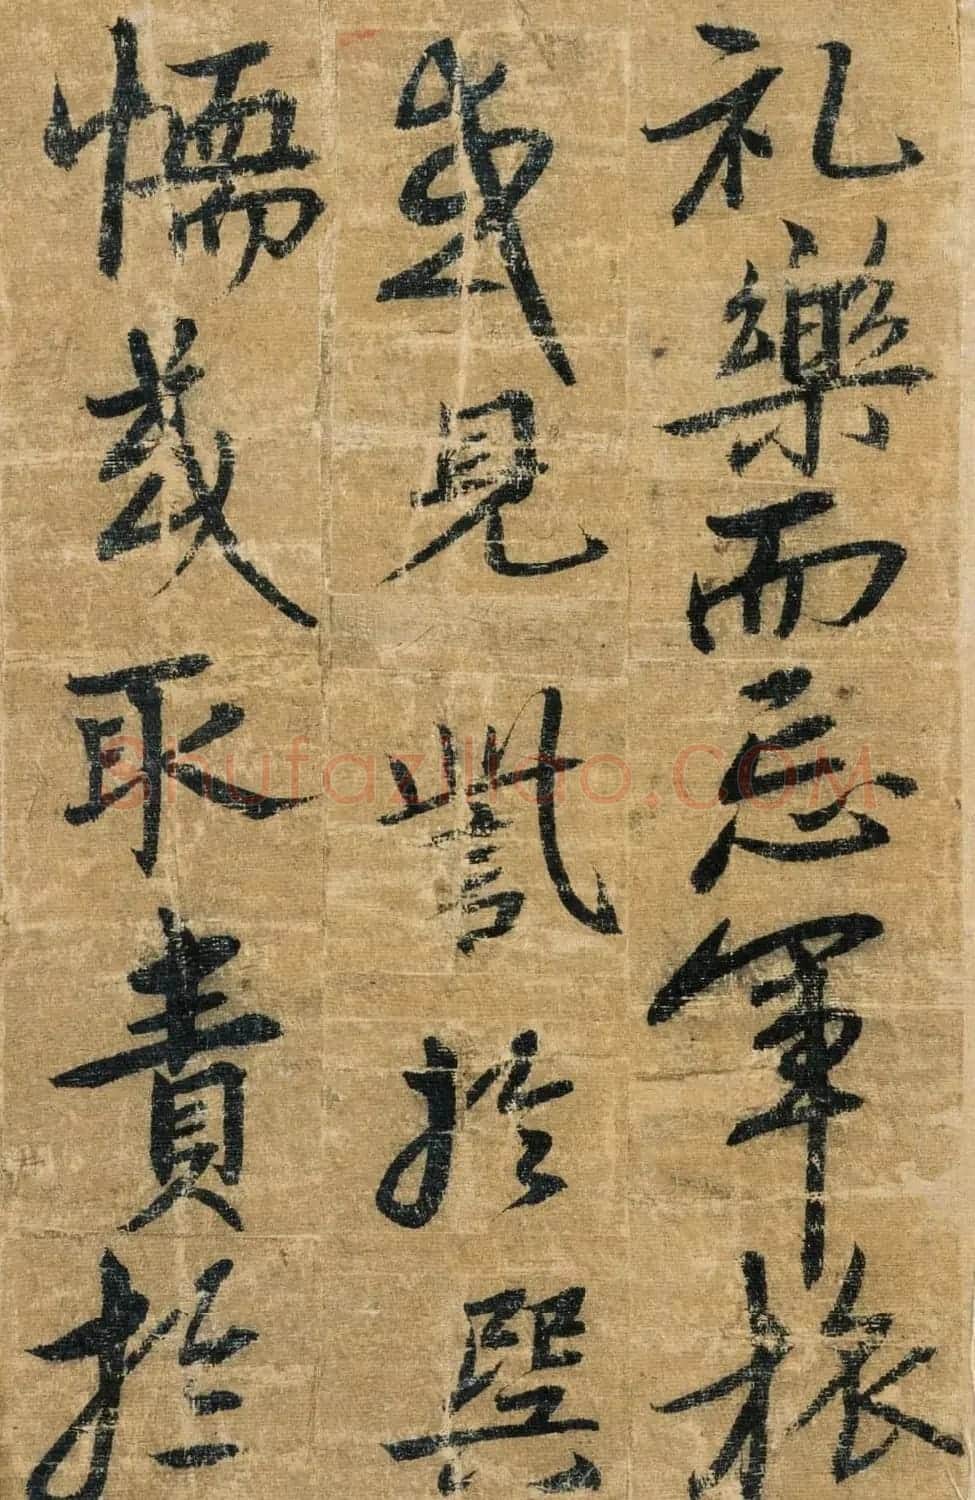 礼樂而忘軍旅
見於
懦取責於
Shufaziliao.COM